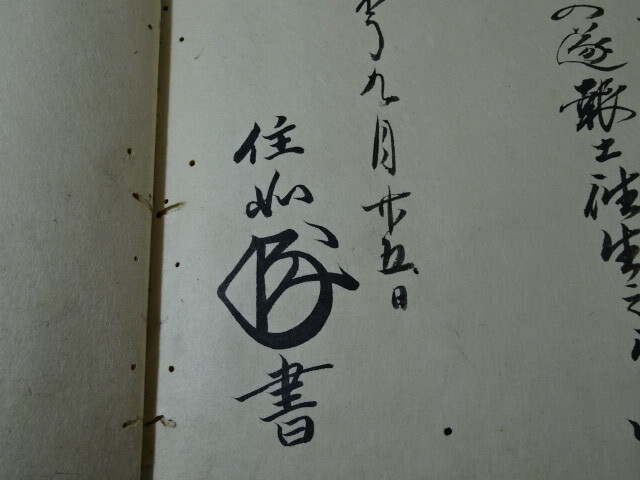 の遂報土往生之
九月廿五日
住如
書